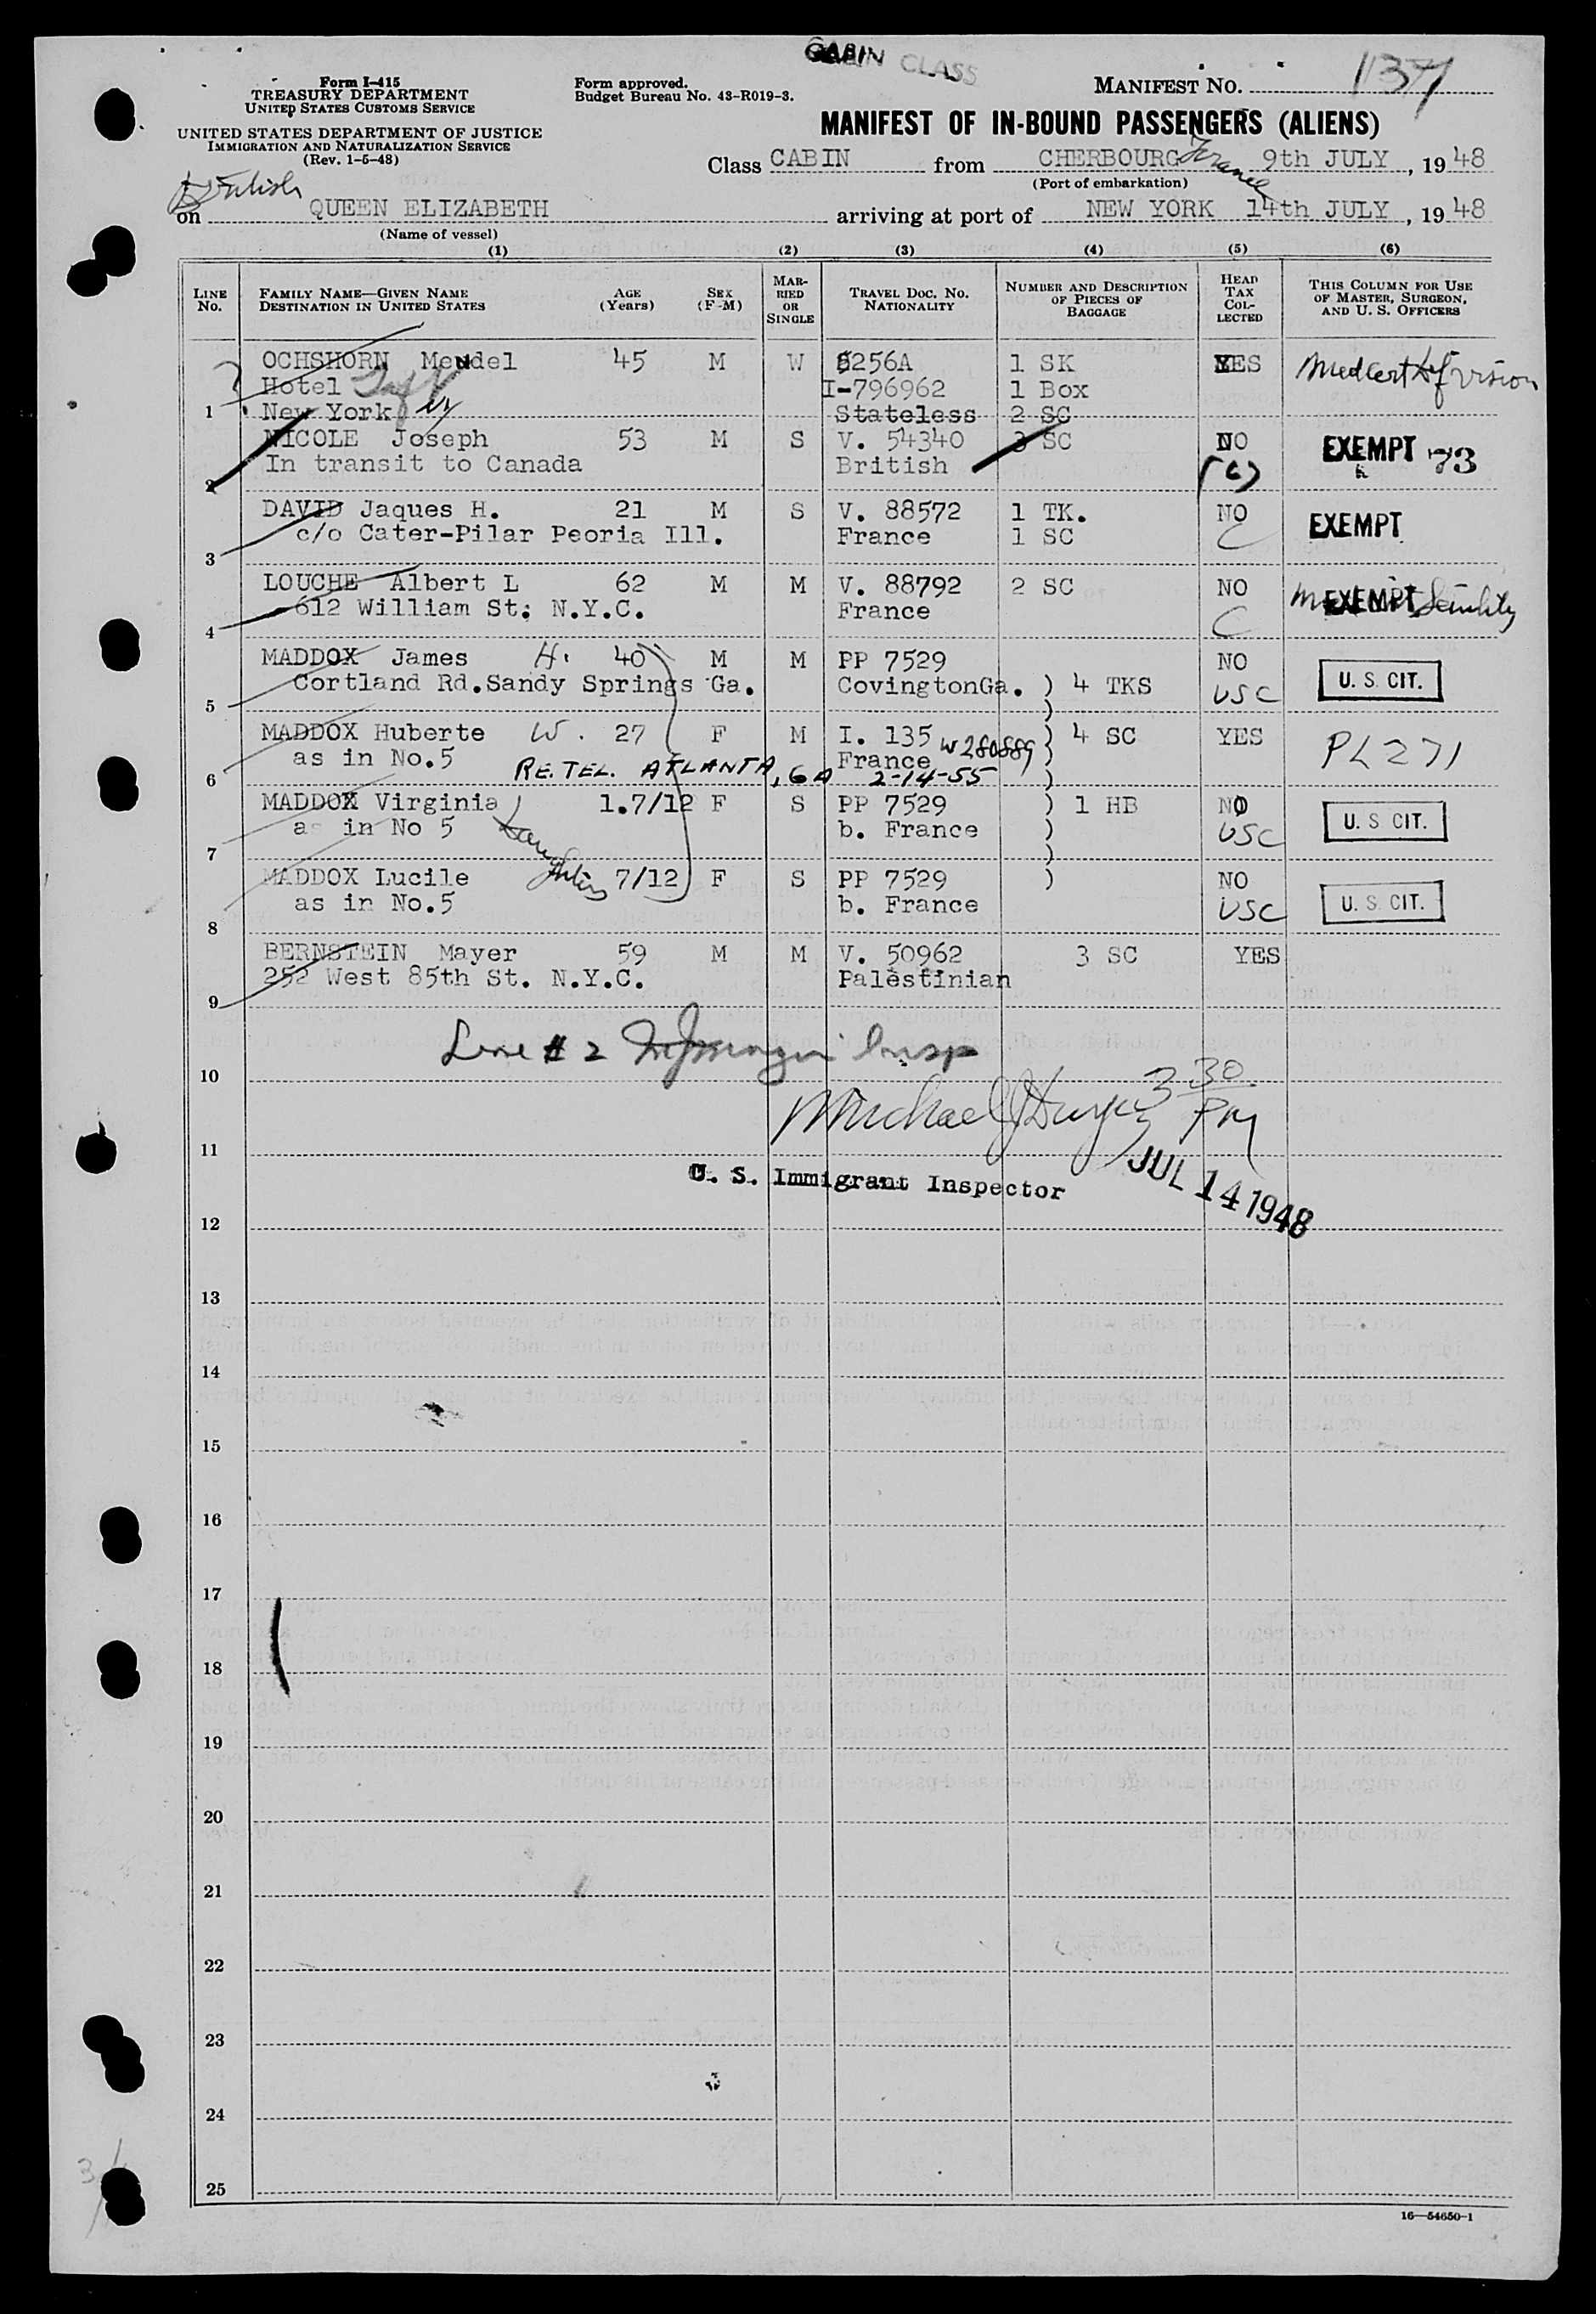 CABIN CLASS
Form I-415
TREASURY DEPARTMENT
UNITED STATES CUSTOMS SERVICE
UNITED STATES DEPARTMENT OF JUSTICE
IMMIGRATION AND NATURALIZATION SERVICE
(Rev. 1-5-48)
Form approved.
Budget Bureau No. 43-R019-3.
MANIFEST NO. 137
MANIFEST OF IN-BOUND PASSENGERS (ALIENS)
Class CABIN from CHERBOURG France 9th JULY, 1948
(Port of embarkation)
British
on QUEEN ELIZABETH arriving at port of NEW YORK 14th JULY, 1948
(Name of vessel)
(1) (2) (3) (4) (5) (6)
LINE No. FAMILY NAME—GIVEN NAME DESTINATION IN UNITED STATES AGE (Years) SEX (F-M) MARRIED OR SINGLE TRAVEL DOC. NO. NATIONALITY NUMBER AND DESCRIPTION OF PIECES OF BAGGAGE HEAD TAX COLLECTED THIS COLUMN FOR USE OF MASTER, SURGEON, AND U. S. OFFICERS
OCHSHORN Mendel 45 M W 5256A 1 SK YES Med Cert Def vision
Hotel Taft I-796962 1 Box
1 New York Stateless 2 SC
NICOLE Joseph 53 M S V. 54340 3 SC NO EXEMPT 73
2 In transit to Canada British (6)
DAVID Jaques H. 21 M S V. 88572 1 TK. NO EXEMPT
3 c/o Cater-Pilar Peoria Ill. France 1 SC C
LOUCHE Albert L 62 M M V. 88792 2 SC NO EXEMPT Senility
4 612 William St. N.Y.C. France C
MADDOX James H. 40 M M PP 7529 NO U. S. CIT.
5 Cortland Rd.Sandy Springs Ga. CovingtonGa. ) 4 TKS USC
MADDOX Huberte W. 27 F M I. 135 W280889 ) 4 SC YES PL 271
as in No.5 France
6 RE. TEL. ATLANTA, GA 2-14-55
MADDOX Virginia 1.7/12 F S PP 7529 ) 1 HB NO U. S. CIT.
7 as in No 5 daughters b. France ) USC
MADDOX Lucile 7/12 F S PP 7529 ) NO U. S. CIT.
8 as in No.5 b. France USC
BERNSTEIN Mayer 59 M M V. 50962 3 SC YES
9 252 West 85th St. N.Y.C. Palestinian
Line # 2 Insp
10
3 30 PM
Michael J
11
U. S. Immigrant Inspector
JUL 14 1948
12
13
14
15
16
17
18
19
20
21
22
23
24
25
16—54650-1